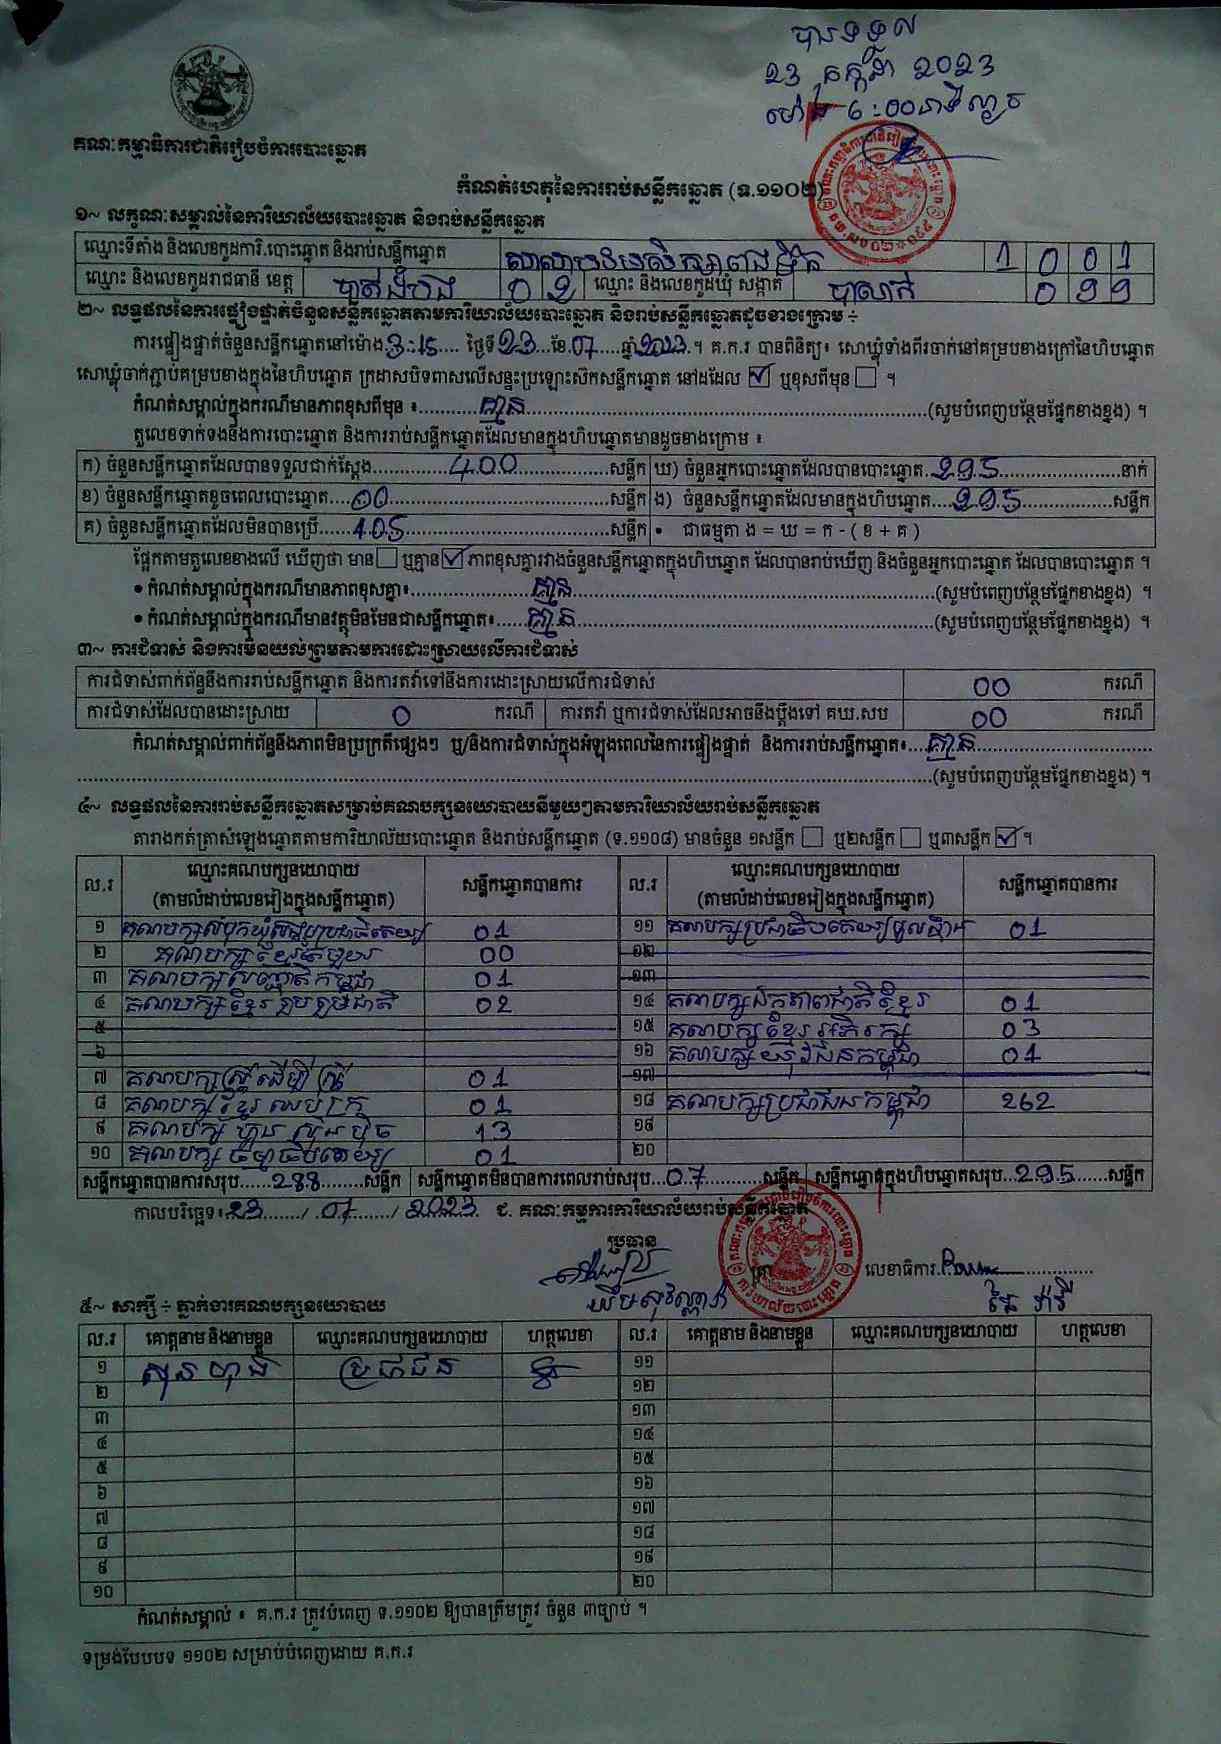 បានទទួល
23 កក្កដា 2023
ម៉ោង 6:00នាទីល្ងាច
គណៈកម្មាធិការជាតិរៀបចំការបោះឆ្នោត
កំណត់ហេតុនៃការរាប់សន្លឹកឆ្នោត (ទ.១១០២)
១~ លក្ខណៈសម្គាល់នៃការិយាល័យបោះឆ្នោត និងរាប់សន្លឹកឆ្នោត
ឈ្មោះទីតាំង និងលេខកូដការិ.បោះឆ្នោត និងរាប់សន្លឹកឆ្នោត 1 0 0 1
ឈ្មោះ និងលេខកូដរាជធានី ខេត្ត បាត់ដំបង 0 2 ឈ្មោះ និងលេខកូដឃុំ សង្កាត់
២~ លទ្ធផលនៃការផ្ទៀងផ្ទាត់ចំនួនសន្លឹកឆ្នោតតាមការិយាល័យបោះឆ្នោត និងរាប់សន្លឹកឆ្នោតដូចខាងក្រោម ÷
ការផ្ទៀងផ្ទាត់ចំនួនសន្លឹកឆ្នោតនៅម៉ោង 3:15 ថ្ងៃទី 23 ខែ 07 ឆ្នាំ 2023 ។ គ.ក.រ បានពិនិត្យ៖ សោឃ្លុំទាំងពីរចាក់នៅគម្របខាងក្រៅនៃហិបឆ្នោត
សោឃ្លុំចាក់ភ្ជាប់គម្របខាងក្នុងនៃហិបឆ្នោត ក្រដាសបិទពាសលើសន្ទះប្រឡោះស៊កសន្លឹកឆ្នោត នៅដដែល ☑ ឬខុសពីមុន ☐ ។
កំណត់សម្គាល់ក្នុងករណីមានភាពខុសពីមុន ៖ គ្មាន (សូមបំពេញបន្ថែមផ្នែកខាងខ្នង) ។
តួលេខទាក់ទងនឹងការបោះឆ្នោត និងការរាប់សន្លឹកឆ្នោតដែលមានក្នុងហិបឆ្នោតមានដូចខាងក្រោម ៖
ក) ចំនួនសន្លឹកឆ្នោតដែលបានទទួលជាក់ស្តែង 400 សន្លឹក ឃ) ចំនួនអ្នកបោះឆ្នោតដែលបានបោះឆ្នោត 295 នាក់
ខ) ចំនួនសន្លឹកឆ្នោតខូចពេលបោះឆ្នោត 00 សន្លឹក ង) ចំនួនសន្លឹកឆ្នោតដែលមានក្នុងហិបឆ្នោត 295 សន្លឹក
គ) ចំនួនសន្លឹកឆ្នោតដែលមិនបានប្រើ 105 សន្លឹក • ជាធម្មតា ង = ឃ = ក - ( ខ + គ )
ផ្អែកតាមតួលេខខាងលើ ឃើញថា មាន ☐ ឬគ្មាន ☑ ភាពខុសគ្នារវាងចំនួនសន្លឹកឆ្នោតក្នុងហិបឆ្នោត ដែលបានរាប់ឃើញ និងចំនួនអ្នកបោះឆ្នោត ដែលបានបោះឆ្នោត ។
• កំណត់សម្គាល់ក្នុងករណីមានភាពខុសគ្នា៖ គ្មាន (សូមបំពេញបន្ថែមផ្នែកខាងខ្នង) ។
• កំណត់សម្គាល់ក្នុងករណីមានវត្ថុមិនមែនជាសន្លឹកឆ្នោត៖ គ្មាន (សូមបំពេញបន្ថែមផ្នែកខាងខ្នង) ។
៣~ ការជំទាស់ និងការមិនយល់ព្រមតាមការដោះស្រាយលើការជំទាស់
ការជំទាស់ពាក់ព័ន្ធនឹងការរាប់សន្លឹកឆ្នោត និងការតវ៉ាទៅនឹងការដោះស្រាយលើការជំទាស់ 00 ករណី
ការជំទាស់ដែលបានដោះស្រាយ 0 ករណី ការតវ៉ា ឬការជំទាស់ដែលអាចនឹងប្តឹងទៅ គឃ.សប 00 ករណី
កំណត់សម្គាល់ពាក់ព័ន្ធនឹងភាពមិនប្រក្រតីផ្សេងៗ ឬ/និងការជំទាស់ក្នុងអំឡុងពេលនៃការផ្ទៀងផ្ទាត់ និងការរាប់សន្លឹកឆ្នោត៖ គ្មាន
(សូមបំពេញបន្ថែមផ្នែកខាងខ្នង) ។
៤~ លទ្ធផលនៃការរាប់សន្លឹកឆ្នោតសម្រាប់គណបក្សនយោបាយនីមួយៗតាមការិយាល័យរាប់សន្លឹកឆ្នោត
តារាងកត់ត្រាសំឡេងឆ្នោតតាមការិយាល័យបោះឆ្នោត និងរាប់សន្លឹកឆ្នោត (ទ.១១០៨) មានចំនួន ១សន្លឹក ☐ ឬ២សន្លឹក ☐ ឬ៣សន្លឹក ☑ ។
ល.រ ឈ្មោះគណបក្សនយោបាយ (តាមលំដាប់លេខរៀងក្នុងសន្លឹកឆ្នោត) សន្លឹកឆ្នោតបានការ ល.រ ឈ្មោះគណបក្សនយោបាយ (តាមលំដាប់លេខរៀងក្នុងសន្លឹកឆ្នោត) សន្លឹកឆ្នោតបានការ
១ គណបក្សសំបុកឃ្មុំសង្គមប្រជាធិបតេយ្យ 01 ១១ គណបក្សប្រជាធិបតេយ្យមូលដ្ឋាន 01
២ គណបក្សខ្មែរតែមួយ 00 ១២
៣ គណបក្សសញ្ជាតិកម្ពុជា 01 ១៣
៤ គណបក្សខ្មែររួបរួមជាតិ 02 ១៤ គណបក្សឯកភាពជាតិខ្មែរ 01
៥ ១៥ គណបក្សខ្មែរអភិរក្ស 03
៦ ១៦ គណបក្សយុវជនកម្ពុជា 01
៧ គណបក្សស្ត្រីដើម្បីស្ត្រី 01 ១៧
៨ គណបក្សខ្មែរឈប់ក្រ 01 ១៨ គណបក្សប្រជាជនកម្ពុជា 262
៩ គណបក្សហ្វ៊ុនស៊ិនប៉ិច 13 ១៩
១០ គណបក្សធម្មាធិបតេយ្យ 01 ២០
សន្លឹកឆ្នោតបានការសរុប 288 សន្លឹក សន្លឹកឆ្នោតមិនបានការពេលរាប់សរុប 07 សន្លឹក សន្លឹកឆ្នោតក្នុងហិបឆ្នោតសរុប 295 សន្លឹក
កាលបរិច្ឆេទ៖ 23 / 07 / 2023 ជ. គណៈកម្មការការិយាល័យរាប់សន្លឹកឆ្នោត
ប្រធាន
លេខាធិការ
៥~ សាក្សី ÷ ភ្នាក់ងារគណបក្សនយោបាយ
ល.រ គោត្តនាម និងនាមខ្លួន ឈ្មោះគណបក្សនយោបាយ ហត្ថលេខា ល.រ គោត្តនាម និងនាមខ្លួន ឈ្មោះគណបក្សនយោបាយ ហត្ថលេខា
១ ប្រជាជន ១១
២ ១២
៣ ១៣
៤ ១៤
៥ ១៥
៦ ១៦
៧ ១៧
៨ ១៨
៩ ១៩
១០ ២០
កំណត់សម្គាល់ ៖ គ.ក.រ ត្រូវបំពេញ ទ.១១០២ ឱ្យបានត្រឹមត្រូវ ចំនួន ៣ច្បាប់ ។
ទម្រង់បែបបទ ១១០២ សម្រាប់បំពេញដោយ គ.ក.រ